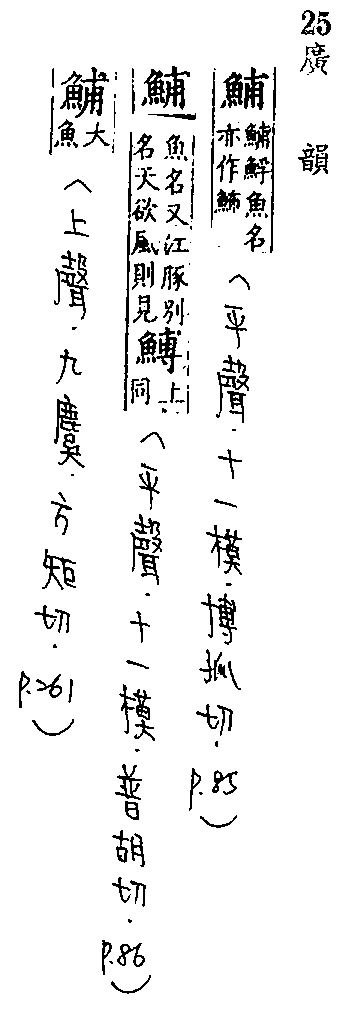 25 廣韻
鯆 鯆䱐魚名亦作鯆 (平聲.十一模.博孤切.p.85)
鯆 魚名又江豚別名天欲風則見 鱄 上同 (平聲.十一模.普胡切.p.86)
鯆 大魚 (上聲.九麌.方矩切.p.261)